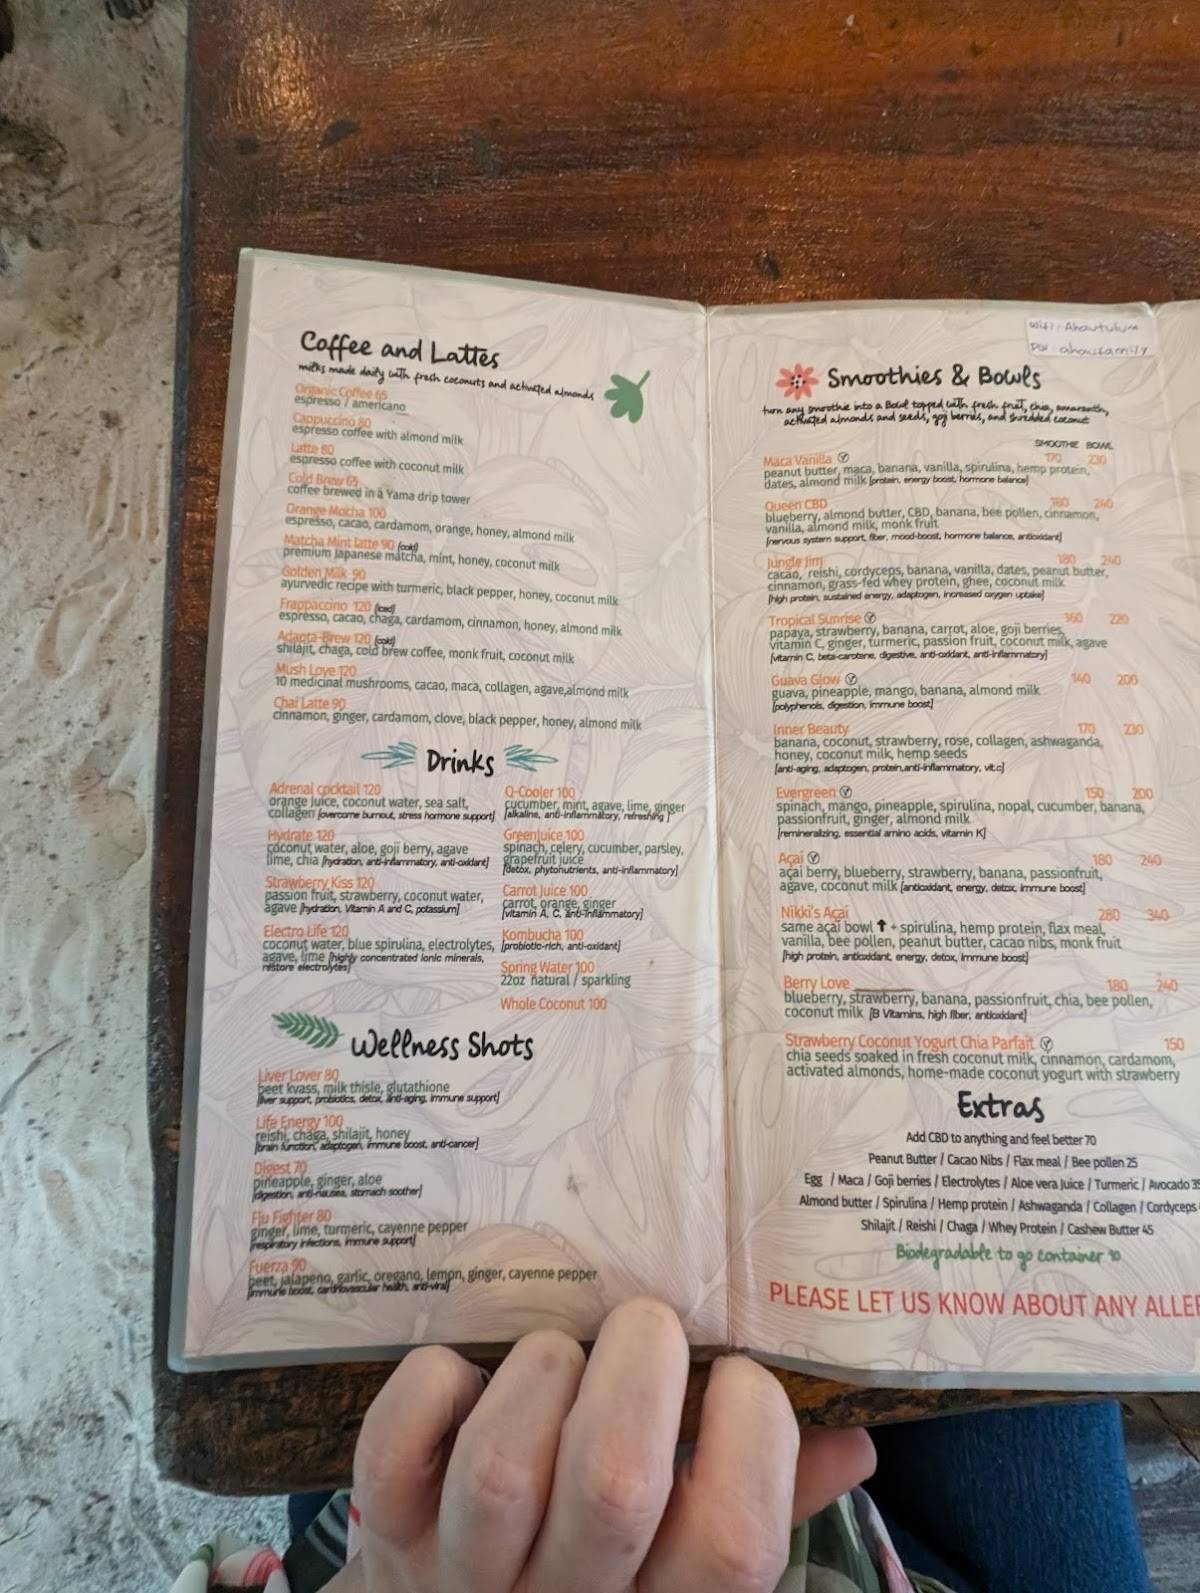 Coffee and Lattes
milks made daily with fresh coconuts and activated almonds
Organic Coffee 65
espresso / americano
Cappuccino 80
espresso coffee with almond milk
Latte 80
espresso coffee with coconut milk
Cold Brew 65
coffee brewed in a Yama drip tower
Orange Mocha 100
espresso, cacao, cardamom, orange, honey, almond milk
Matcha Mint latte 90 (cold)
premium Japanese matcha, mint, honey, coconut milk
Golden Milk 90
ayurvedic recipe with turmeric, black pepper, honey, coconut milk
Frappaccino 120 (iced)
espresso, cacao, chaga, cardamom, cinnamon, honey, almond milk
Adapta-Brew 120 (cold)
shilajit, chaga, cold brew coffee, monk fruit, coconut milk
Mush Love 120
10 medicinal mushrooms, cacao, maca, collagen, agave,almond milk
Chai Latte 90
cinnamon, ginger, cardamom, clove, black pepper, honey, almond milk
Drinks
Adrenal cocktail 120
orange juice, coconut water, sea salt,
collagen [overcome burnout, stress hormone support]
Hydrate 120
coconut water, aloe, goji berry, agave
lime, chia [hydration, anti-inflammatory, anti-oxidant]
Strawberry Kiss 120
passion fruit, strawberry, coconut water,
agave [hydration, Vitamin A and C, potassium]
Electro Life 120
coconut water, blue spirulina, electrolytes,
agave, lime [highly concentrated ionic minerals,
restore electrolytes]
Q-Cooler 100
cucumber, mint, agave, lime, ginger
[alkaline, anti-inflammatory, refreshing ]
GreenJuice 100
spinach, celery, cucumber, parsley,
grapefruit juice
[detox, phytonutrients, anti-inflammatory]
Carrot Juice 100
carrot, orange, ginger
[vitamin A, C, anti-inflammatory]
Kombucha 100
[probiotic-rich, anti-oxidant]
Spring Water 100
22oz natural / sparkling
Whole Coconut 100
Wellness Shots
Liver Lover 80
beet kvass, milk thisle, glutathione
[liver support, probiotics, detox, anti-aging, immune support]
Life Energy 100
reishi, chaga, shilajit, honey
[brain function, adaptogen, immune boost, anti-cancer]
Digest 70
pineapple, ginger, aloe
[digestion, anti-nausea, stomach soother]
Flu Fighter 80
ginger, lime, turmeric, cayenne pepper
[respiratory infections, immune support]
Fuerza 90
beet, jalapeno, garlic, oregano, lemon, ginger, cayenne pepper
[immune boost, cardiovascular health, anti-viral]
Wifi: Ahautulum
ahaufamily
Smoothies & Bowls
turn any smoothie into a Bowl topped with fresh fruit, chia, amaranth,
activated almonds and seeds, goji berries, and shredded coconut
SMOOTHIE BOWL
Maca Vanilla 170 230
peanut butter, maca, banana, vanilla, spirulina, hemp protein,
dates, almond milk [protein, energy boost, hormone balance]
Queen CBD 180 240
blueberry, almond butter, CBD, banana, bee pollen, cinnamon,
vanilla, almond milk, monk fruit
[nervous system support, fiber, mood-boost, hormone balance, antioxidant]
Jungle Jim 180 240
cacao, reishi, cordyceps, banana, vanilla, dates, peanut butter,
cinnamon, grass-fed whey protein, ghee, coconut milk
[high protein, sustained energy, adaptogen, increased oxygen uptake]
Tropical Sunrise 160 220
papaya, strawberry, banana, carrot, aloe, goji berries,
vitamin C, ginger, turmeric, passion fruit, coconut milk, agave
[vitamin C, beta-carotene, digestive, anti-oxidant, anti-inflammatory]
Guava Glow 140 200
guava, pineapple, mango, banana, almond milk
[polyphenols, digestion, immune boost]
Inner Beauty 170 230
banana, coconut, strawberry, rose, collagen, ashwaganda,
honey, coconut milk, hemp seeds
[anti-aging, adaptogen, protein,anti-inflammatory, vit.c]
Evergreen 150 200
spinach, mango, pineapple, spirulina, nopal, cucumber, banana,
passionfruit, ginger, almond milk
[remineralizing, essential amino acids, vitamin K]
Açaí 180 240
açaí berry, blueberry, strawberry, banana, passionfruit,
agave, coconut milk [antioxidant, energy, detox, immune boost]
Nikki's Açaí 280 340
same açaí bowl ↑ + spirulina, hemp protein, flax meal,
vanilla, bee pollen, peanut butter, cacao nibs, monk fruit
[high protein, antioxidant, energy, detox, immune boost]
Berry Love 180 240
blueberry, strawberry, banana, passionfruit, chia, bee pollen,
coconut milk [B Vitamins, high fiber, antioxidant]
Strawberry Coconut Yogurt Chia Parfait 150
chia seeds soaked in fresh coconut milk, cinnamon, cardamom,
activated almonds, home-made coconut yogurt with strawberry
Extras
Add CBD to anything and feel better 70
Peanut Butter / Cacao Nibs / Flax meal / Bee pollen 25
Egg / Maca / Goji berries / Electrolytes / Aloe vera Juice / Turmeric / Avocado 35
Almond butter / Spirulina / Hemp protein / Ashwaganda / Collagen / Cordyceps
Shilajit / Reishi / Chaga / Whey Protein / Cashew Butter 45
Biodegradable to go container 10
PLEASE LET US KNOW ABOUT ANY ALLE